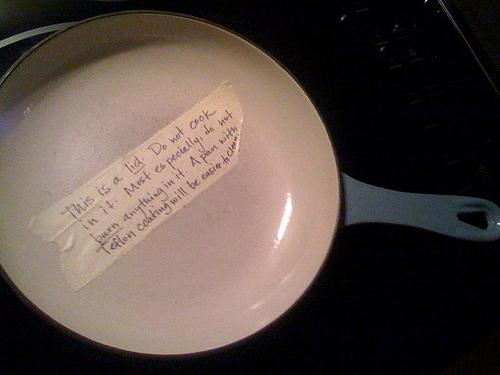 This is a lid. Do not cook
in it. Most especially, do not
burn anything in it. A pan with
Teflon coating will be easier to clean!